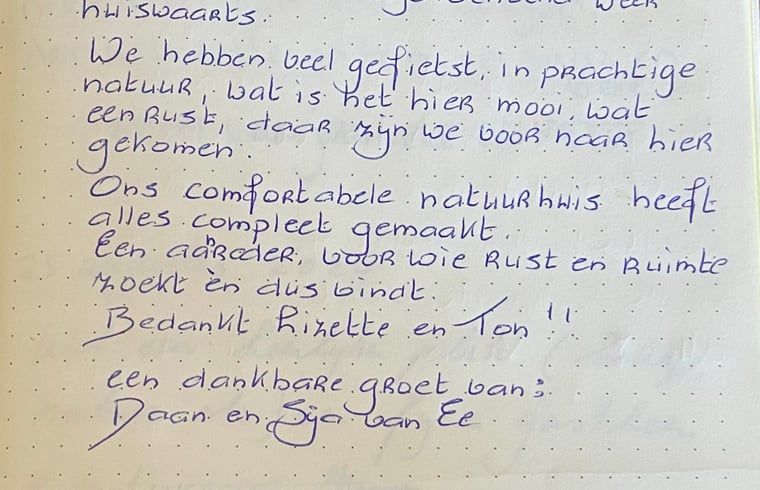 huiswaarts. week
We hebben veel gefietst, in prachtige
natuur, wat is het hier mooi, wat
een Rust, daar zijn we voor naar hier
gekomen.
Ons comfortabele natuurhuis heeft
alles compleet gemaakt.
Een aanrader, voor wie Rust en Ruimte
zoekt èn dus vindt.
Bedankt Rizette en Ton!!
een dankbare groet van:
Daan en Sija van Ee